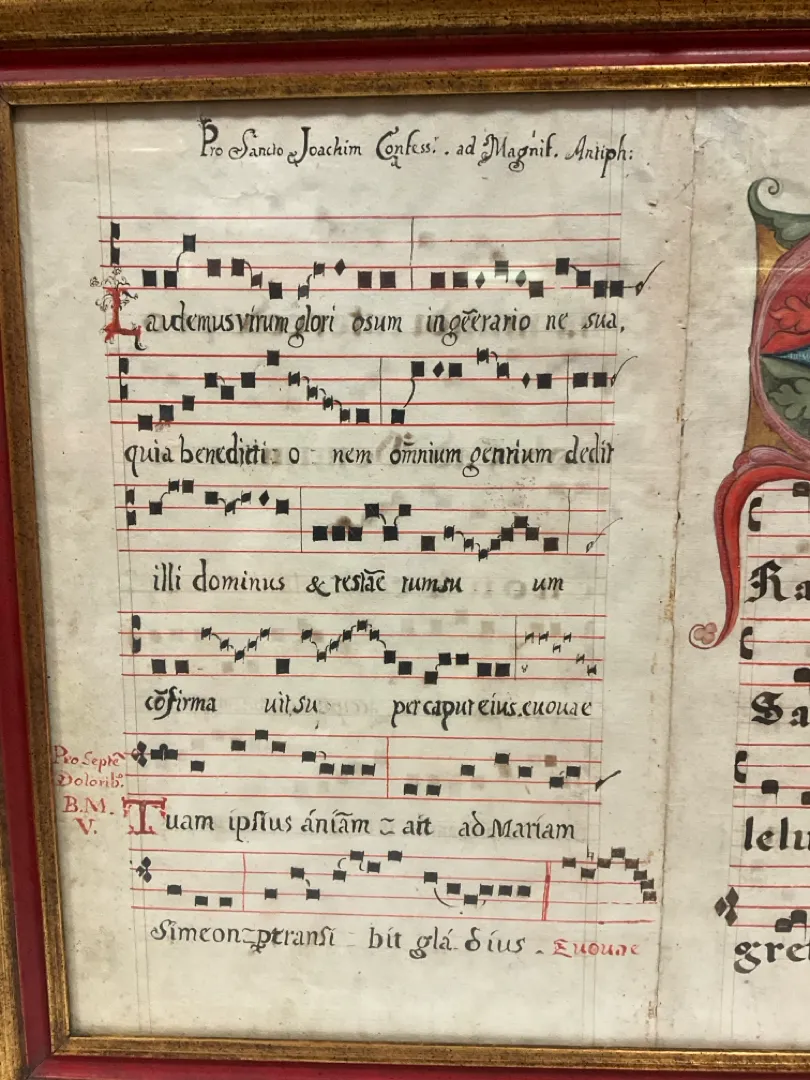 Pro Sancto Joachim Confess: . ad Magnif. Antiph:
Laudemus virum glori osum in gēērario ne sua,
quia beneditti o nem om̄nium gentium dedit
illi dominus & testāē tum su um
cōfirma uit su per caput eius. euouae
Pro Septē
Dolorib⁹.
B. M.
V.
Tuam ipsius ániām ait ad Mariam
Simeon ꝑtransi bit glá dius . Euouae
Ra
Sa
lelu
gret